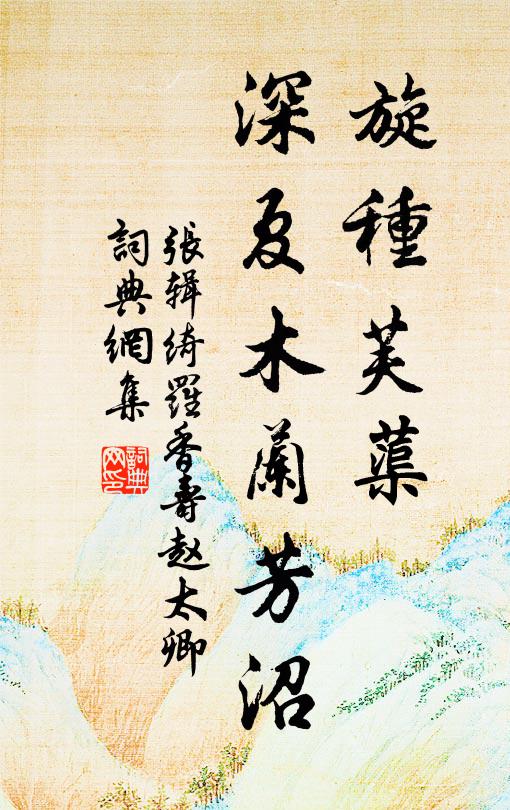 旋種芙蕖
深夏木蘭芳沼
張辑綺羅香壽赵太卿
詞典網集
詞典網印